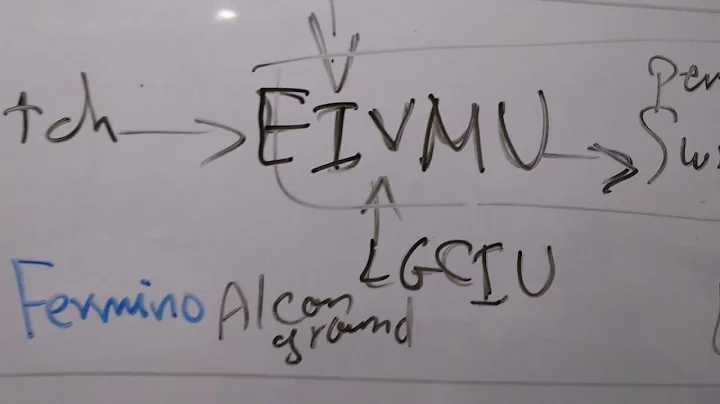 tch EIVMU
LGCIU
Fermino Alcon
ground